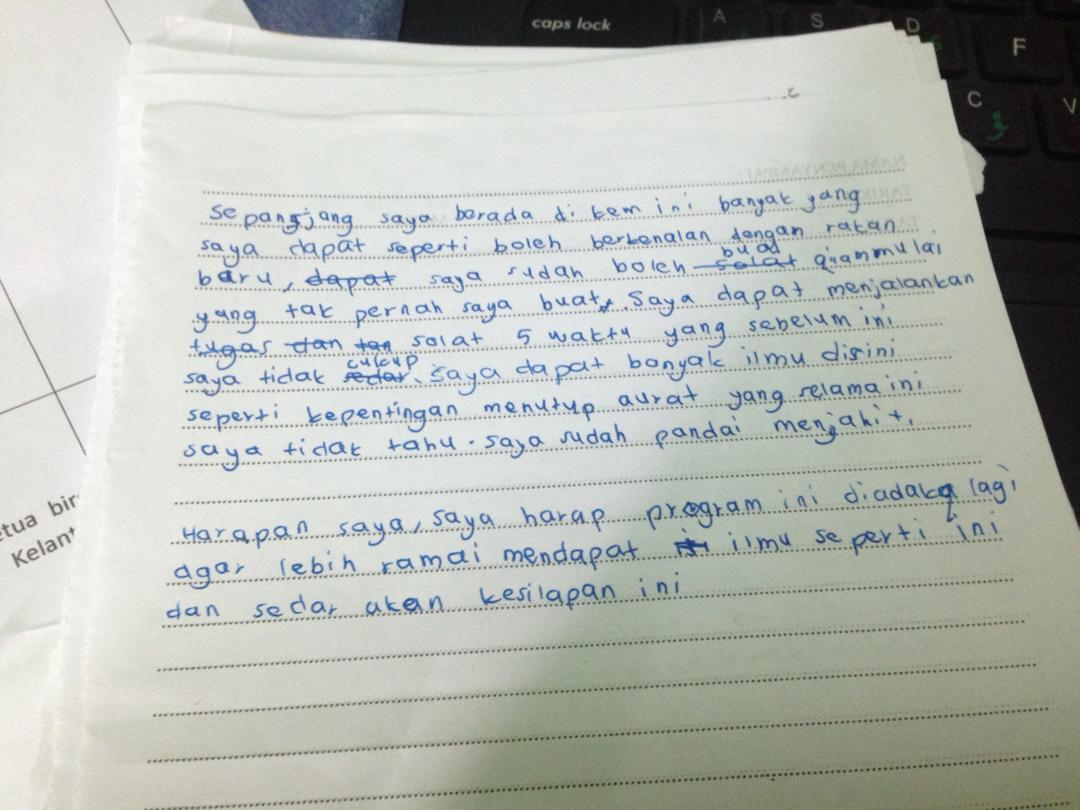 caps lock
A
S
D
F
C
V
sepangjang saya berada di kem ini banyak yang
saya dapat seperti boleh berkenalan dengan rakan
baru, dapat saya sudah boleh solat buat qiammulai
yang tak pernah saya buat. Saya dapat menjalankan
tugas dan tan solat 5 waktu yang sebelum ini
saya tidak sedar cukup. Saya dapat banyak ilmu disini
seperti kepentingan menutup aurat yang selama ini
saya tidak tahu. saya sudah pandai menjahit.
Harapan saya, saya harap program ini diadaka lagi
agar lebih ramai mendapat ilmu seperti ini
dan sedar akan kesilapan ini
etua bir
Kelant